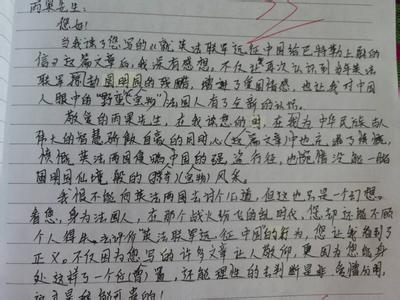 雨果先生:
您好!
当我读了您写的《就英法联军远征中国给巴特勒上尉的
信》这篇文章后,我深有感想。不仅让我再次认识到当年英法
联军原劫圆明园的残酷,增进了爱国情感,也让我对中国
人眼中的“野蛮动物”法国人有了全新的认识。
敬爱的雨果先生,在我读您的 时,在视为中华民族
伟大的智慧骄傲自豪的同时心 (这篇文章)中也充满了愤慨,
愤慨英法两国侵略中国的强盗行径,也惋惜没能一睹
圆明园仙境般的 风采。
我恨不能向英法两国去讨个公道,但这也只是一个幻想。
看您,身为法国人,在那个战火纷飞的乱时代,您却还能不顾
个人得失,去评价英法联军远征中国的行为,您让我看到了
正义。不仅因为您写的许多文章让人敬仰,更因为您能身
处这样了一个位 置,还能理性的去判断是非 爱憎分明,
这可是我能可贵的!